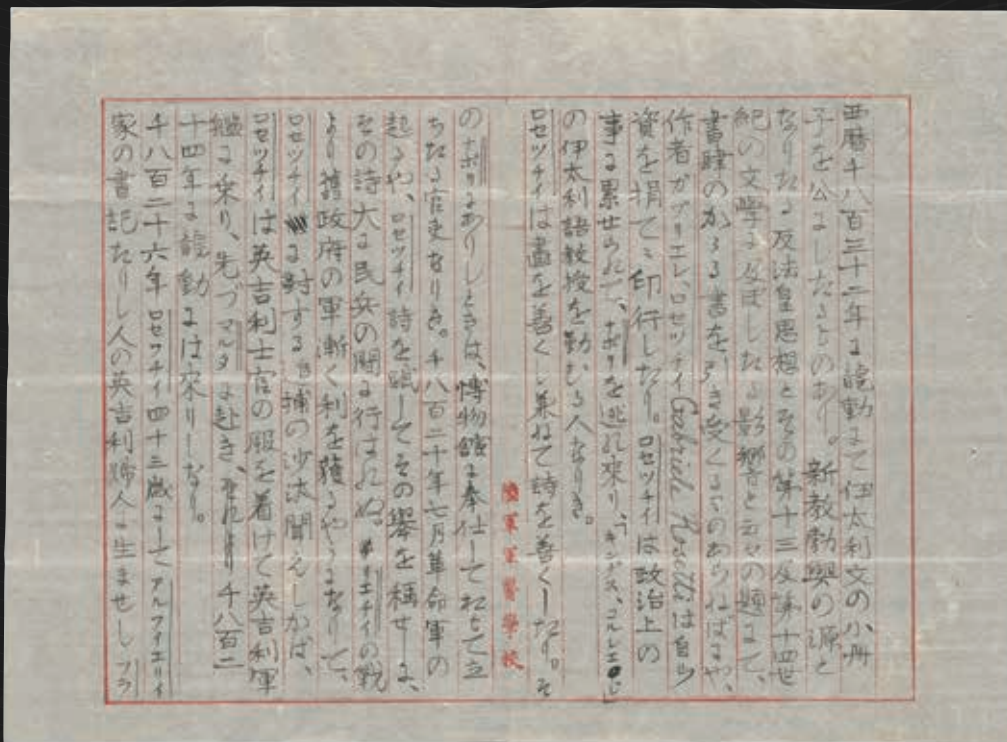 西暦千八百三十二年に龍動にて伊太利文の小冊
子を公にしたるものあり。新教勃興の源と
なりたる反法皇思想とその第十三及第十四世
紀の文學に及ぼしたる影響と云々の題にて、
書肆のかゝる書を引き受くるものあらねばにや、
作者ガブリエレ、ロセツチイ Gabriele Rossetti は自ら
資を捐てゝ印行したり。ロセツチイは政治上の
事に累せられて、ナポリを逃れ來り、「キングス、コルレエジ」
の伊太利語教授を勤むる人なりき。
ロセツチイは畫を善くし兼ねて詩を善くしたり。そ
の ナポリにありしときは、博物館に奉仕してむもて立
ちたる官吏なりき。千八百二十年七月革命軍の
起るや、ロセツチイ詩を賦してその擧を稱せしに、
その詩大に民兵の間に行はれぬ。リエチイの戰
より舊政府の軍漸く利を獲るやうになりて、
ロセツチイに對する逮捕の沙汰聞えしかば、
ロセツチイは英吉利士官の服を着けて英吉利軍
艦に乘り、先づマルタに赴き、それより千八百二
十四年に龍動には來りしなり。
千八百二十六年ロセツチイ四十三歳にしてアルフイエリイ
家の書記たりし人の英吉利婦人に生ませしフラ
陸軍軍醫學校